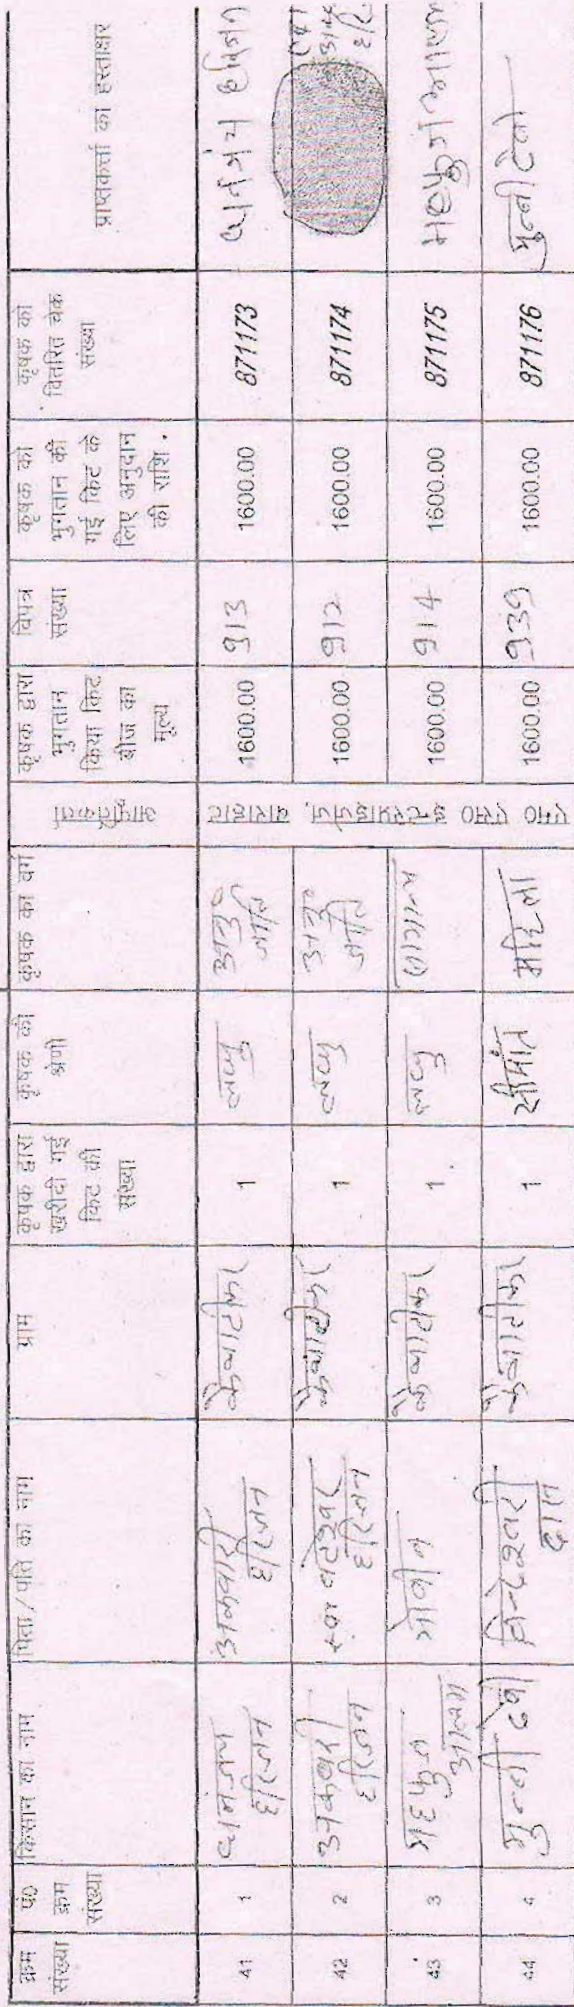 क्रम संख्या
पं० क्रम संख्या
किसान का नाम
पिता / पति का नाम
ग्राम
कृषक द्वारा खरीदी गई किट की संख्या
कृषक की श्रेणी
कृषक का वर्ग
आपूर्तिकर्ता
कृषक द्वारा भुगतान किया किट बीज का मूल्य
विपत्र संख्या
कृषक को भुगतान की गई किट के लिए अनुदान की राशि .
कृषक को वितरित चेक संख्या
प्राप्तकर्ता का हस्ताक्षर
एम० एस० इन्टरप्राइजेज, बाराहाट
41 1 धनंजय हरिजन अकबारी हरिजन 1 लघु अनु० जाति 1600.00 913 1600.00 871173 धनंजय हरिजन
42 2 अकबारी हरिजन हरिजन 1 लघु अनु० जाति 1600.00 912 1600.00 871174
43 3 महफुज आलम 1 लघु सामान्य 1600.00 914 1600.00 871175 महफुज आलम
44 4 मुन्नी देवी दास 1 सीमांत महिला 1600.00 939 1600.00 871176 मुन्नी देवी